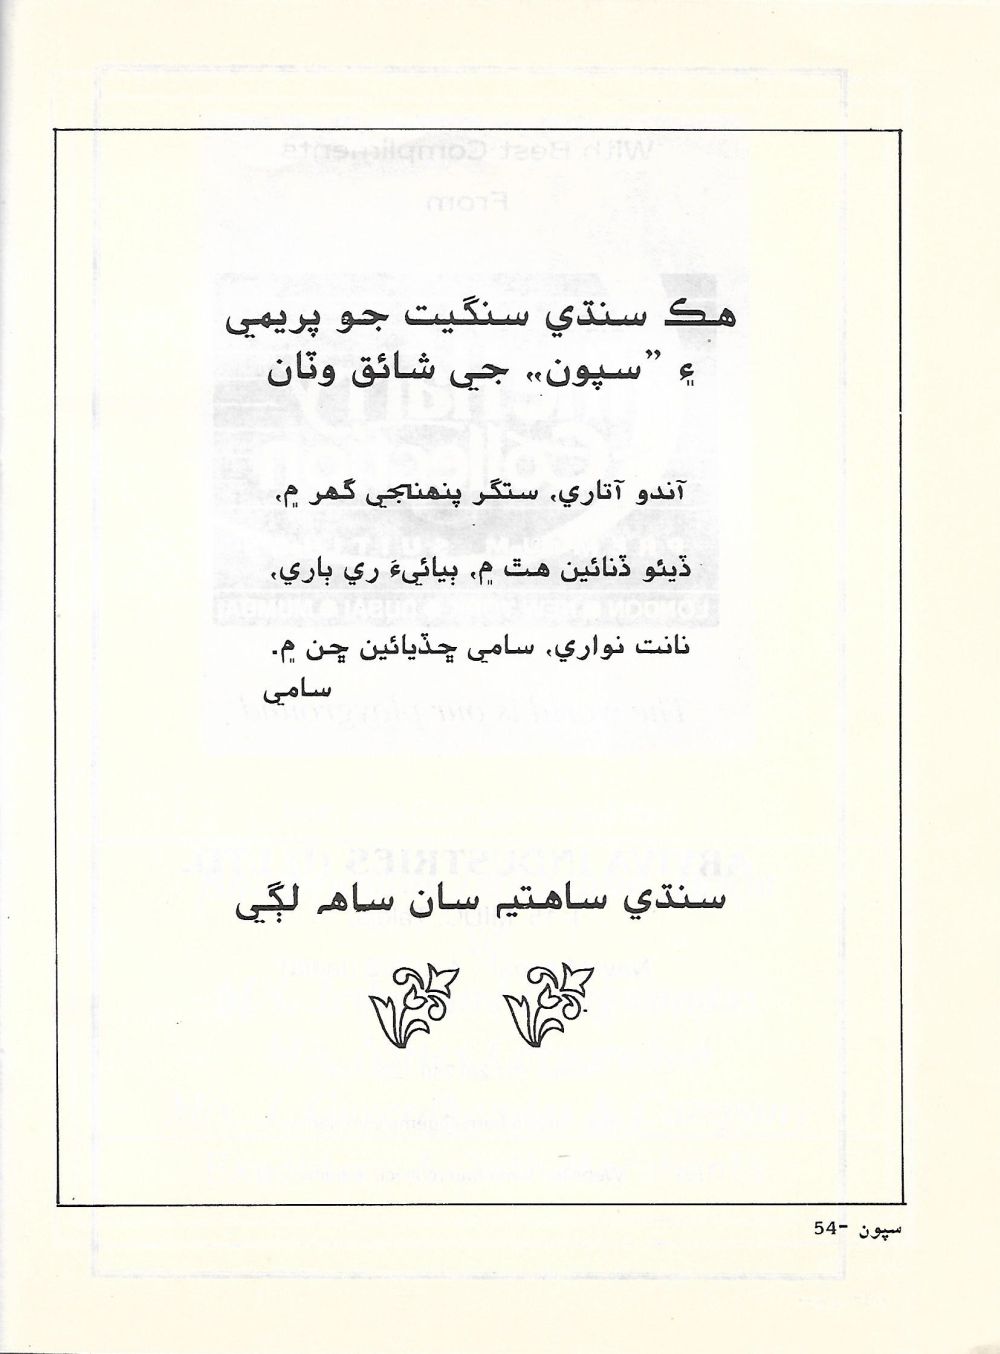 هڪ سنڌي سنگيت جو پريمي
۽ ”سپون„ جي شائق وٽان
آندو آتاري، ستگر پنهنجي گهر ۾،
ڏيئو ڏنائين هٿ ۾، ٻيائيءَ ري ٻاري،
نانت نواري، سامي ڇڏيائين ڇن ۾.
سامي
سنڌي ساهتيہ سان ساهہ لڳي
سپون -54